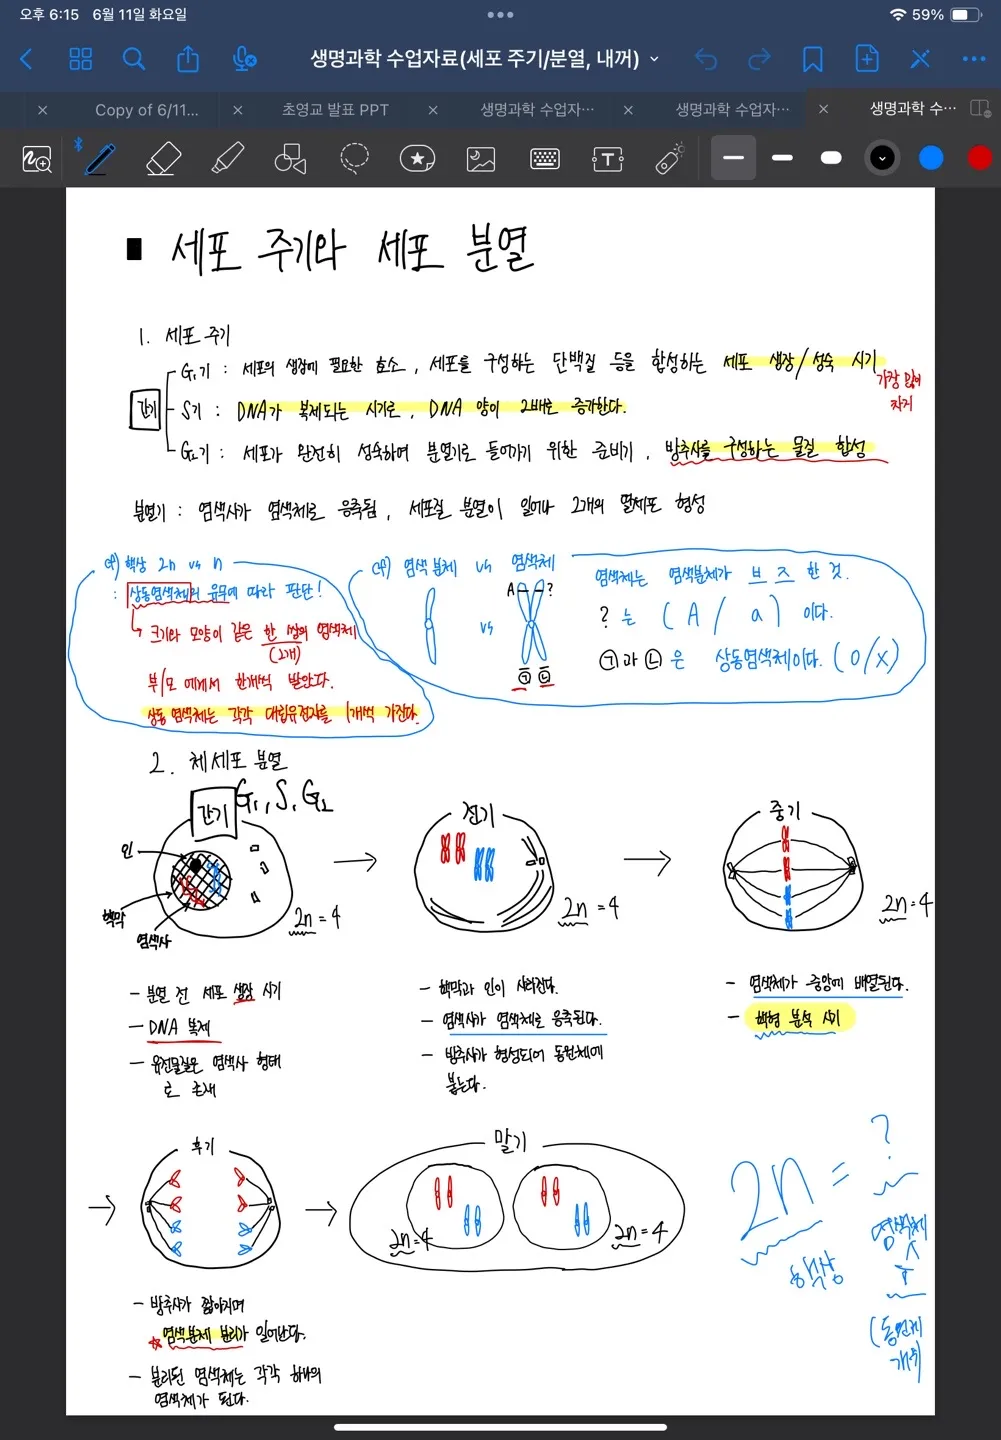 오후 6:15 6월 11일 화요일
59%
생명과학 수업자료(세포 주기/분열, 내꺼)
Copy of 6/11...
초영교 발표 PPT
생명과학 수업자...
생명과학 수업자...
생명과학 수...
■ 세포 주기와 세포 분열
1. 세포 주기
간기
G₁기 : 세포의 생장에 필요한 효소, 세포를 구성하는 단백질 등을 합성하는 세포 생장/성숙 시기
가장 많이
자라
S기 : DNA가 복제되는 시기로, DNA 양이 2배로 증가한다.
G₂기 : 세포가 완전히 성숙하여 분열기로 들어가기 위한 준비기, 방추사를 구성하는 물질 합성
분열기 : 염색사가 염색체로 응축됨, 세포질 분열이 일어나 2개의 딸세포 형성
cf) 핵상 2n vs n
: 상동염색체의 유무에 따라 판단!
→ 크기와 모양이 같은 한 쌍의 염색체
(2개)
부/모 에게서 한개씩 받았다.
상동 염색체는 각각 대립유전자를 1개씩 가진다.
cf) 염색 분체 vs 염색체
A ?
vs
㉠ ㉡
염색체는 염색분체가 브 즈 한 것.
? 는 ( A / a ) 이다.
㉠과 ㉡은 상동염색체이다. (O/X)
2. 체세포 분열
간기 G₁, S, G₂
인
핵막
염색사
2n = 4
- 분열 전 세포 생장 시기
- DNA 복제
- 유전물질은 염색사 형태
로 존재
전기
2n = 4
- 핵막과 인이 사라진다.
- 염색사가 염색체로 응축된다.
- 방추사가 형성되어 동원체에
붙는다.
중기
2n = 4
- 염색체가 중앙에 배열된다.
- 핵형 분석 시기
후기
- 방추사가 짧아지며
★ 염색분체 분리가 일어난다.
- 분리된 염색체는 각각 하나의
염색체가 된다.
말기
2n = 4
2n = 4
2n = ?
핵상
염색체
수
(동원체
개수)